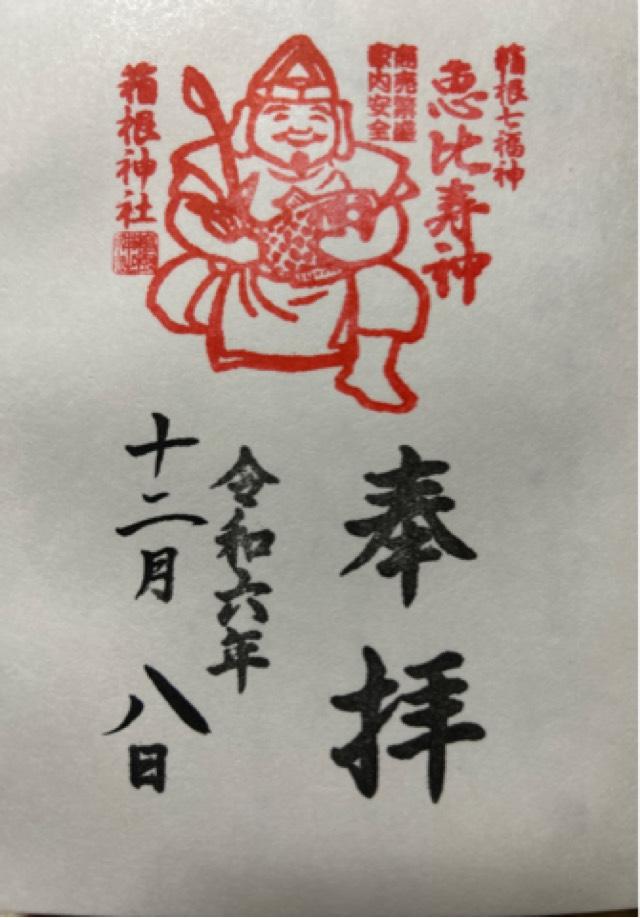 箱根七福神
恵比寿神
商売繁盛
家内安全
箱根神社
奉拝
令和六年
十二月 八日